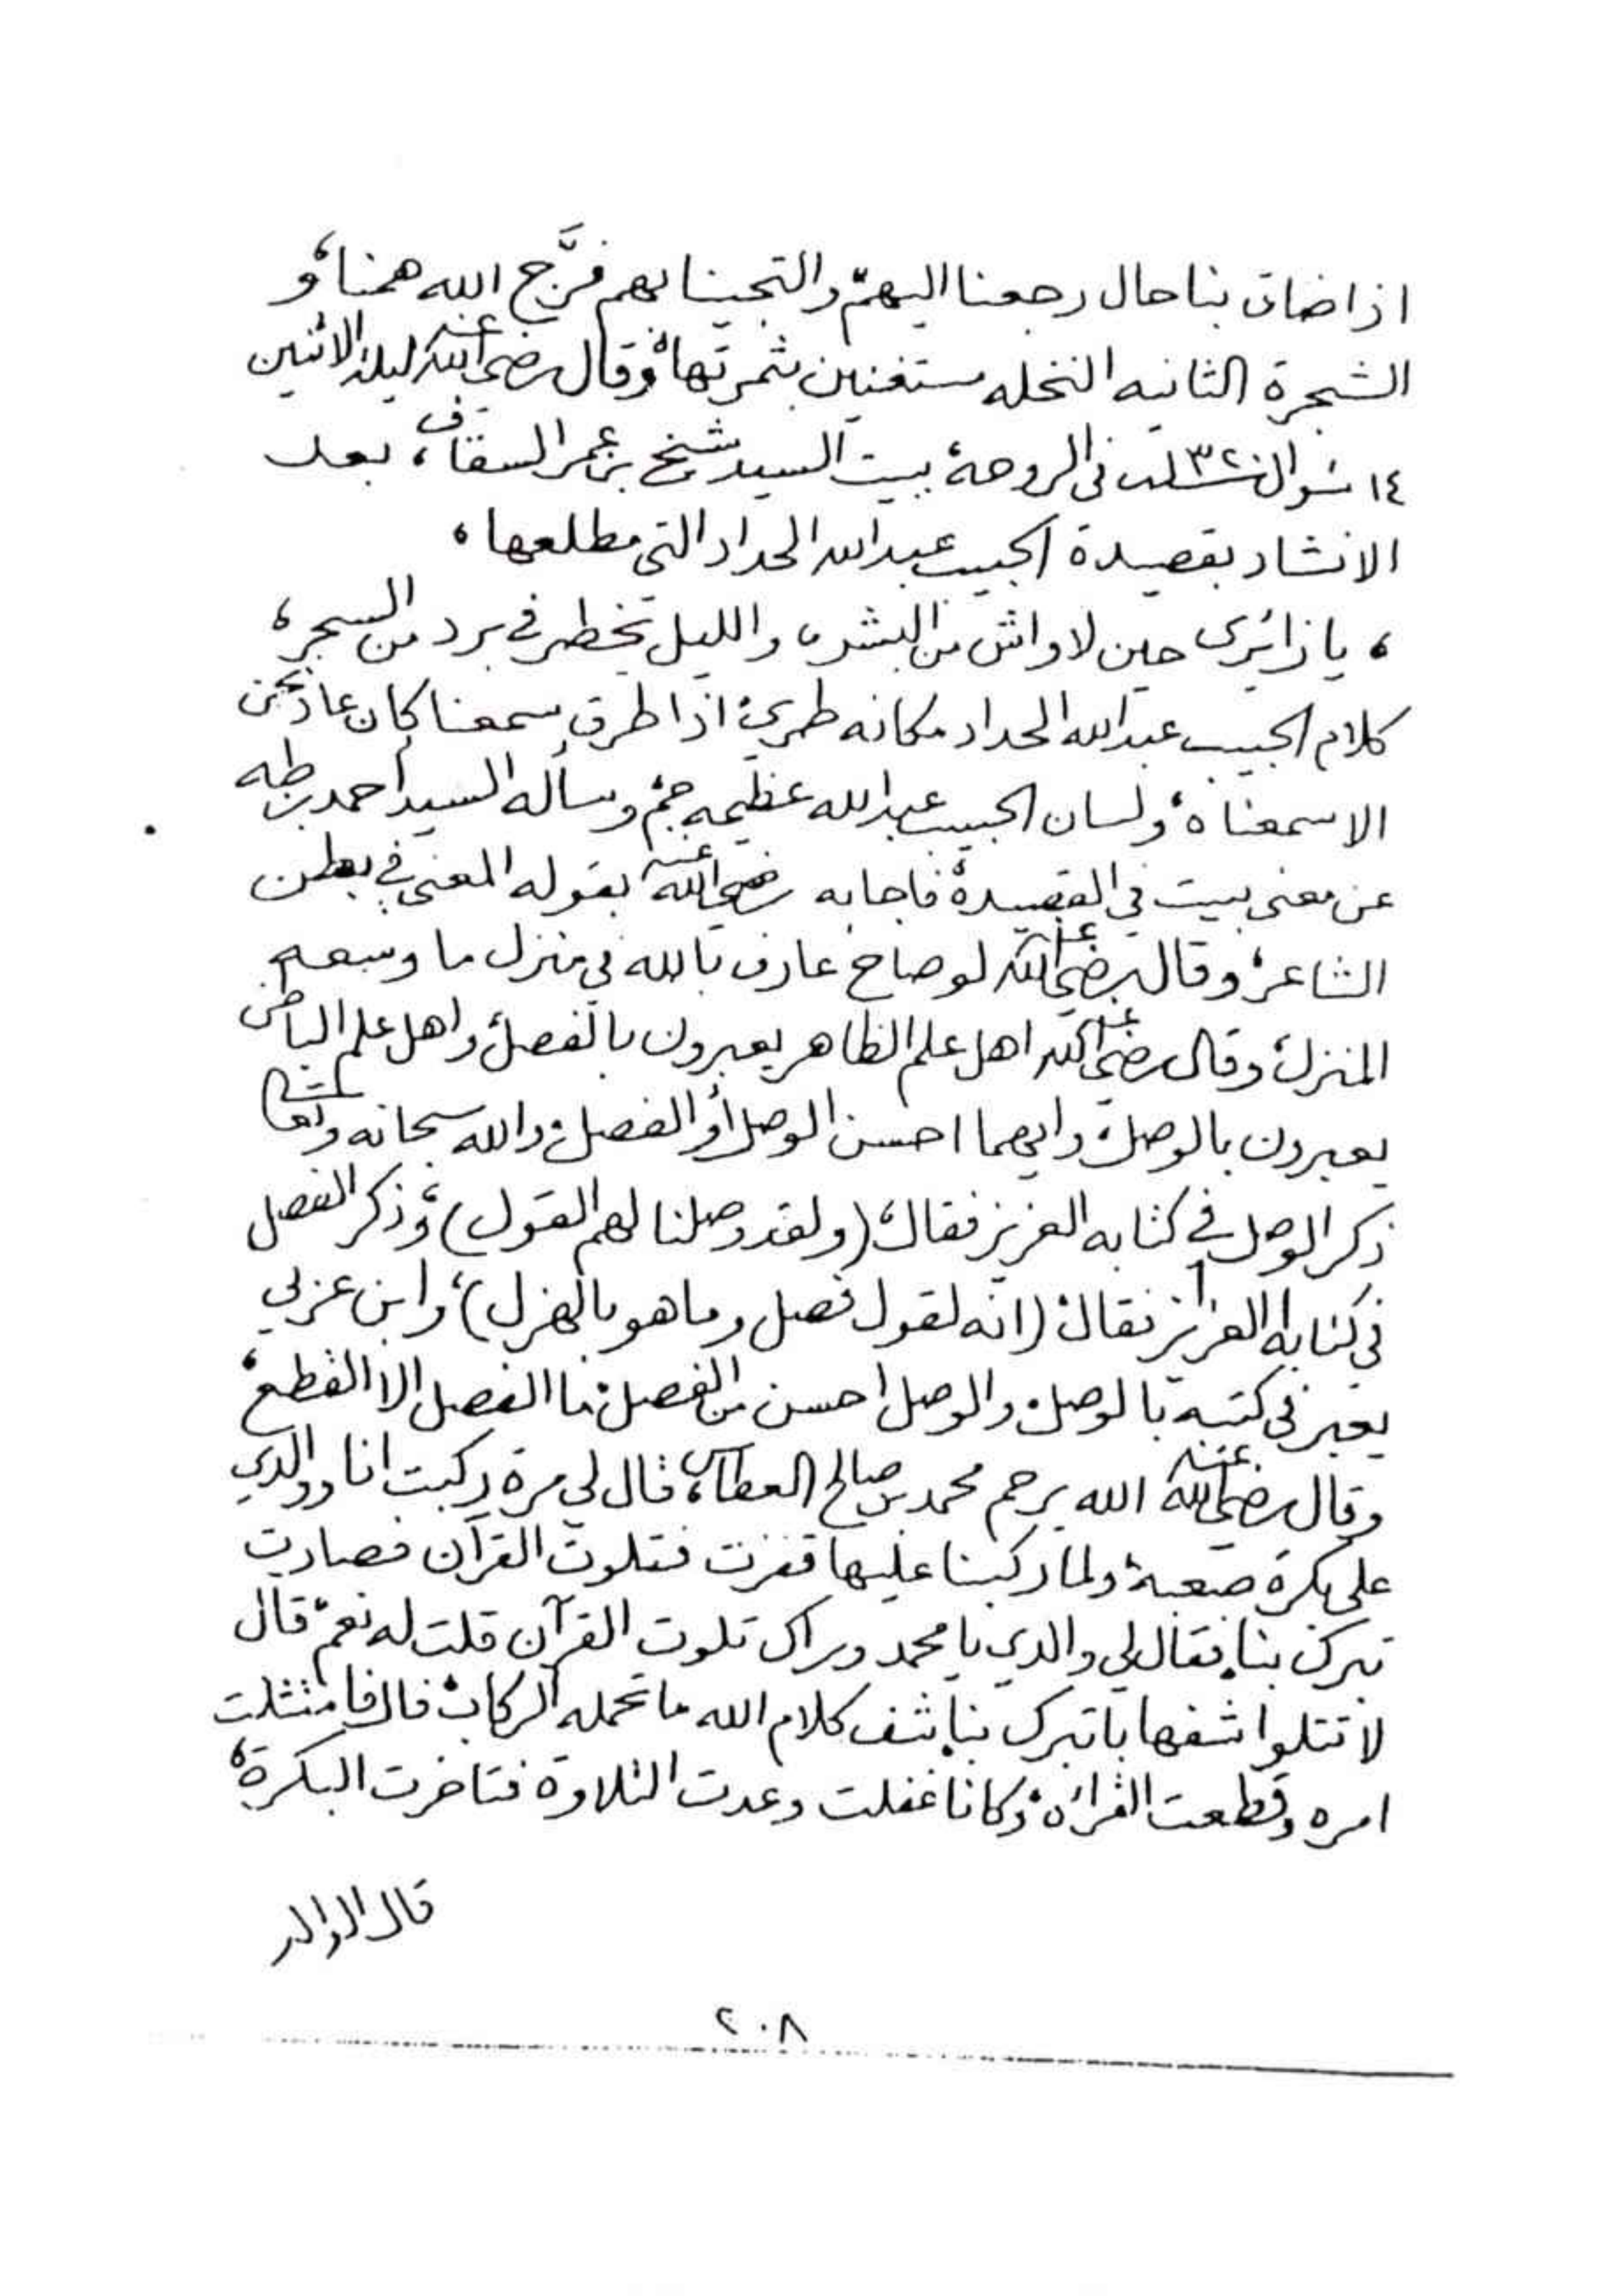 اذا ضاق بنا حال رجعنا اليهم، والتجينا بهم فرَّج الله همنا، و
الشجرة الثانيه النخله مستغنين بثمرتها، وقال رضي الله عنه ليلة الاثنين
١٤ شوال سنة ١٣٢٠ في الروحة ببيت السيد شيخ بن عمر السقاف، بعد
الانشاد بقصيدة الحبيب عبدالله الحداد التي مطلعها،
، يا زائري حين لا واش من البشر، والليل تخطر في برد من السحر،
كلام الحبيب عبدالله الحداد مكانه طري، اذا طرق سمعنا كان عاد نحن
الا سمعناه، ولسان الحبيب عبدالله عظيمه جم، وسأله السيد أحمد بن طه
عن معنى بيت في القصيدة، فاجابه رضي الله عنه بقوله المعنى في بطن
الشاعر، وقال رضي الله عنه لو صاح عارف بالله في منزل ما وسعه
المنزل، وقال رضي الله عنه اهل علم الظاهر يعبرون بالفصل، واهل علم الباطن
يعبرون بالوصل، وايهما احسن الوصل أو الفصل، والله سبحانه وتعالى
ذكر الوصل في كتابه العزيز فقال، (ولقد وصلنا لهم القول)، وذكر الفصل
في كتابه العزيز فقال، (انه لقول فصل وما هو بالهزل)، وابن عربي
يعبر في كتبه بالوصل، والوصل احسن من الفصل، ما الفصل الا القطع،
وقال رضي الله عنه الله يرحم محمد بن صالح العطاس، قال لي مرة ركبت انا ووالدي
على بكرة صعبة، ولما ركبنا عليها قفزت فتلوت القرآن فصارت
تبرك بنا، فقال لي والدي يا محمد وراك تلوت القرآن قلت له نعم، قال
لا تتلوا شفها با تبرك بنا، شف كلام الله ما تحمله الركاب، قال فامتثلت
امره وقطعت القرائة، وكانا غفلت وعدت التلاوة فتاخرت البكرة،
قال الوالد
٢٠٨